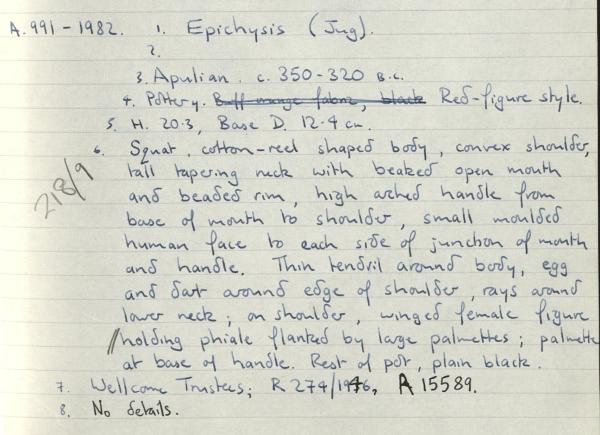 A.991-1982. 1. Epichysis (Jug).
2.
3. Apulian. c. 350-320 B.C.
4. Pottery. Buff orange fabric, black Red-figure style.
5. H. 20.3, Base D. 12.4 cm.
6. Squat, cotton-reel shaped body, convex shoulder,
tall tapering neck with beaked open mouth
and beaded rim, high arched handle from
base of mouth to shoulder, small moulded
human face to each side of junction of mouth
and handle. Thin tendril around body, egg
and dart around edge of shoulder, rays around
lower neck; on shoulder, winged female figure
holding phiale flanked by large palmettes; palmette
at base of handle. Rest of pot, plain black.
7. Wellcome Trustees; R 274/1976, A 15589.
8. No details.
218/9